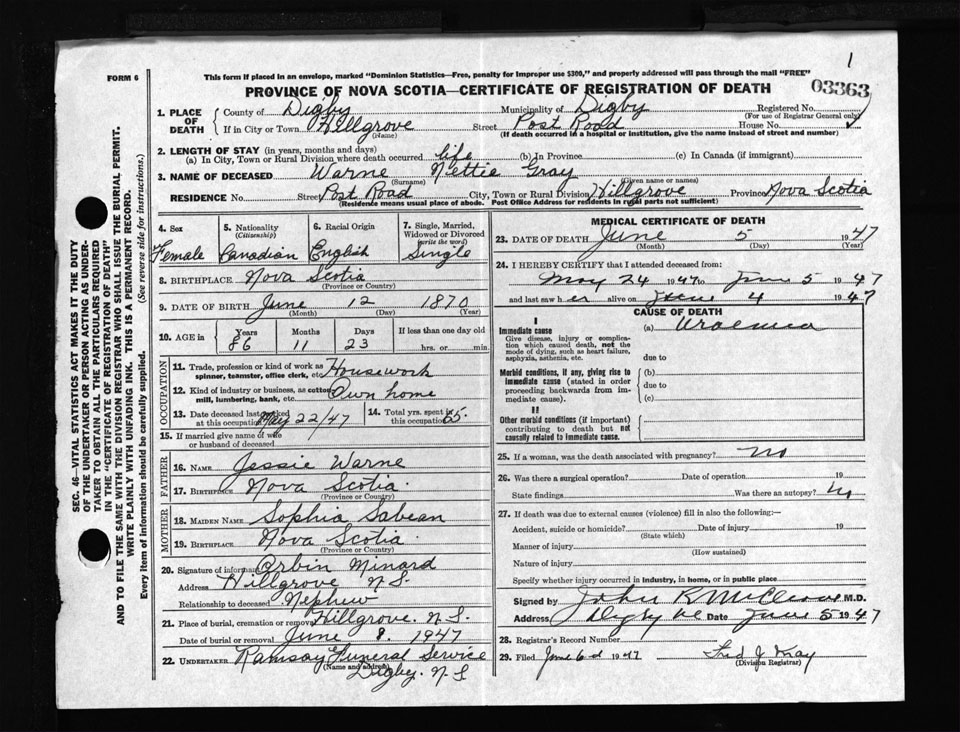 1
FORM 6
This form if placed in an envelope, marked "Dominion Statistics—Free, penalty for improper use $300," and properly addressed will pass through the mail "FREE"
PROVINCE OF NOVA SCOTIA—CERTIFICATE OF REGISTRATION OF DEATH
03363
1. PLACE OF DEATH
County of Digby Municipality of Digby Registered No.
(For use of Registrar General only)
If in City or Town Hillgrove Street Post Road House No.
(Name) (If death occurred in a hospital or institution, give the name instead of street and number)
2. LENGTH OF STAY (in years, months and days)
(a) In City, Town or Rural Division where death occurred life (b) In Province (c) In Canada (if immigrant)
3. NAME OF DECEASED Warne Nettie Gray
(Surname) (Given name or names)
RESIDENCE No. Street Post Road City, Town or Rural Division Hillgrove Province Nova Scotia
(Residence means usual place of abode. Post Office Address for residents in rural parts not sufficient)
4. Sex Female
5. Nationality (Citizenship) Canadian
6. Racial Origin English
7. Single, Married, Widowed or Divorced (write the word) Single
8. BIRTHPLACE Nova Scotia
(Province or Country)
9. DATE OF BIRTH June 12 1870
(Month) (Day) (Year)
10. AGE in Years Months Days If less than one day old
86 11 23 hrs. or min.
OCCUPATION
11. Trade, profession or kind of work as spinner, teamster, office clerk, etc. Housework
12. Kind of industry or business, as cotton mill, lumbering, bank, etc. Own home
13. Date deceased last worked at this occupation May 22/47
14. Total yrs. spent in this occupation 65
15. If married give name of wife or husband of deceased
FATHER
16. NAME Jessie Warne
17. BIRTHPLACE Nova Scotia
(Province or Country)
MOTHER
18. MAIDEN NAME Sophia Sabean
19. BIRTHPLACE Nova Scotia
(Province or Country)
20. Signature of informant Orbin Minard
Address Hillgrove N.S.
Relationship to deceased Nephew
21. Place of burial, cremation or removal Hillgrove. N.S.
Date of burial or removal June 8. 1947
22. UNDERTAKER Ramsay Funeral Service
(Name and address) Digby. N.S
MEDICAL CERTIFICATE OF DEATH
23. DATE OF DEATH June 5 1947
(Month) (Day) (Year)
24. I HEREBY CERTIFY that I attended deceased from:
May 24 1947 to June 5 1947
and last saw her alive on June 4 1947
CAUSE OF DEATH
I
Immediate cause (a) Uraemia
Give disease, injury or complication which caused death, not the mode of dying, such as heart failure, asphyxia, asthenia, etc.
due to
Morbid conditions, if any, giving rise to immediate cause (stated in order proceeding backwards from immediate cause).
(b)
due to
(c)
II
Other morbid conditions (if important) contributing to death but not causally related to immediate cause.
25. If a woman, was the death associated with pregnancy? no
26. Was there a surgical operation? Date of operation 19
State findings Was there an autopsy? no
27. If death was due to external causes (violence) fill in also the following:—
Accident, suicide or homicide? Date of injury 19
(State which)
Manner of injury
(How sustained)
Nature of injury
Specify whether injury occurred in industry, in home, or in public place
Signed by John R McCleave M.D.
Address Digby NS Date June 5 1947
28. Registrar's Record Number
29. Filed June 6th 1947
(Division Registrar)
SEC. 46—VITAL STATISTICS ACT MAKES IT THE DUTY
OF THE UNDERTAKER OR PERSON ACTING AS UNDER-
TAKER TO OBTAIN ALL THE PARTICULARS REQUIRED
IN THE "CERTIFICATE OF REGISTRATION OF DEATH"
AND TO FILE THE SAME WITH THE DIVISION REGISTRAR WHO SHALL ISSUE THE BURIAL PERMIT.
WRITE PLAINLY WITH UNFADING INK. THIS IS A PERMANENT RECORD.
Every item of information should be carefully supplied. (See reverse side for instructions.)